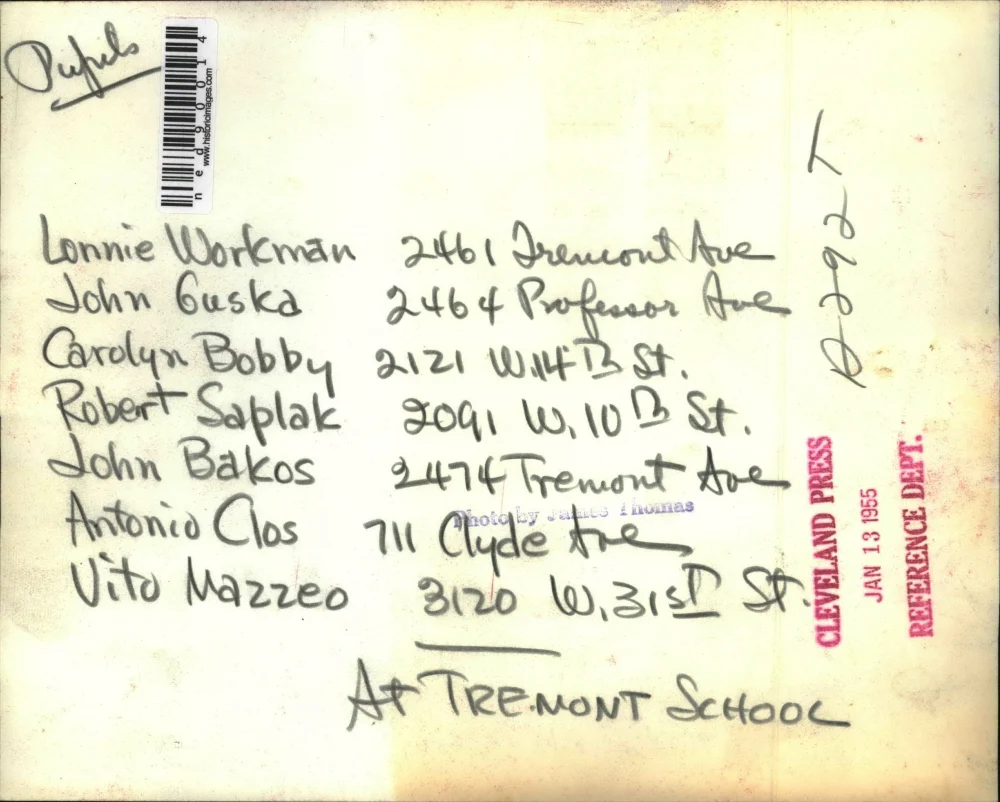 Pupils
ned90014
www.historicimages.com
Lonnie Workman 2461 Tremont Ave
John Guska 2464 Professor Ave
Carolyn Bobby 2121 W.14th St.
Robert Saplak 2091 W. 10th St.
John Bakos 2474 Tremont Ave
Photo by James Thomas
Antonio Clos 711 Clyde Ave
Vito Mazzeo 3120 W. 31st St.
At TREMONT SCHOOL
CLEVELAND PRESS
JAN 13 1955
REFERENCE DEPT.